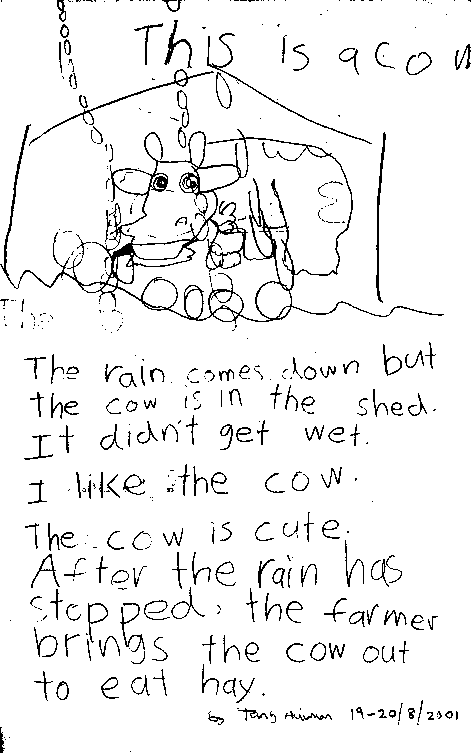 This is a Cow
The
The rain comes down but
the cow is in the shed.
It didn't get wet.
I like the cow.
The cow is cute.
After the rain has
stopped, the farmer
brings the cow out
to eat hay.
by Tang 19-20/8/2001